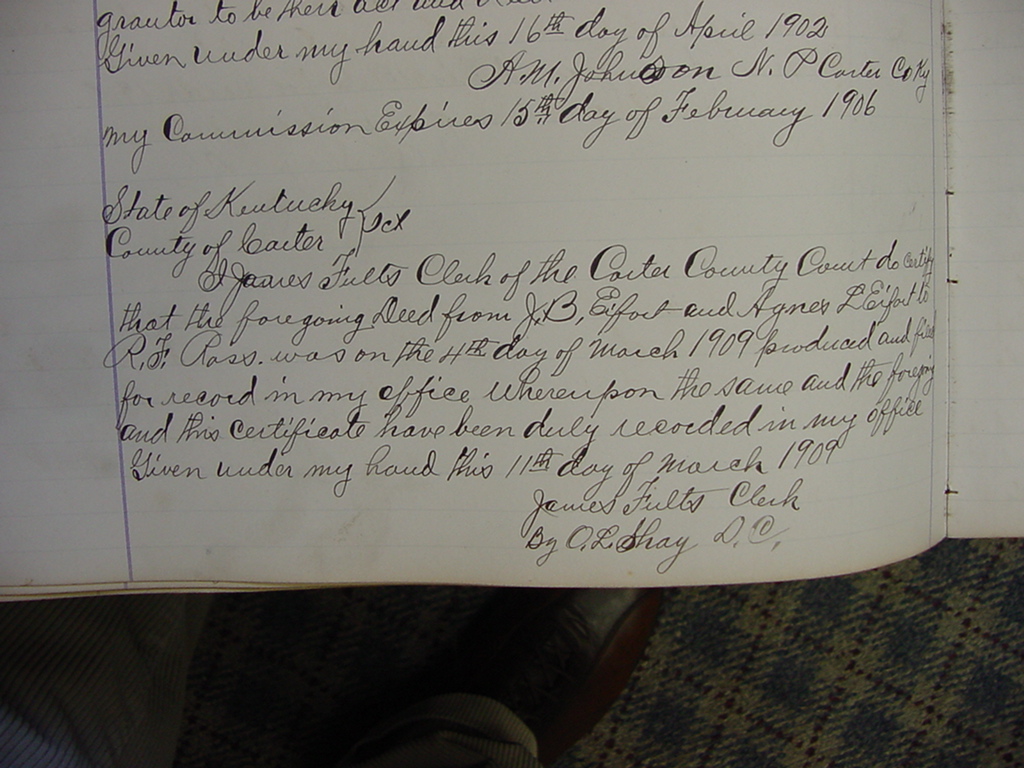 grantor to be their act and deed
Given under my hand this 16th day of April 1902
A. M. Johnson N. P Carter Co Ky
my Commission Expires 15th day of February 1906
State of Kentucky
County of Carter } Sct
I James Fults Clerk of the Carter County Court do certify
that the foregoing Deed from J. B. Eifort and Agnes L Eifort to
R. F. Ross. was on the 4th day of March 1909 produced and filed
for record in my office whereupon the same and the foregoing
and this certificate have been duly recorded in my office
Given under my hand this 11th day of March 1909
James Fults Clerk
By O. L. Shay D. C.